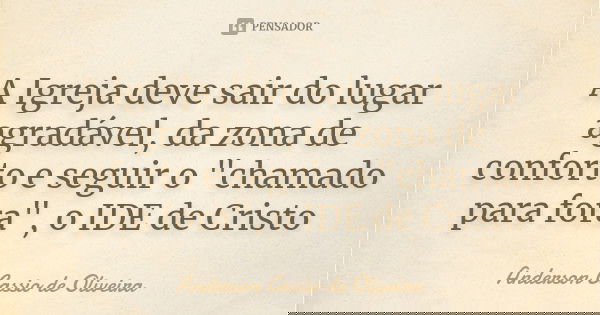 PENSADOR
A Igreja deve sair do lugar
agradável, da zona de
conforto e seguir o "chamado
para fora", o IDE de Cristo
Anderson Cassio de Oliveira